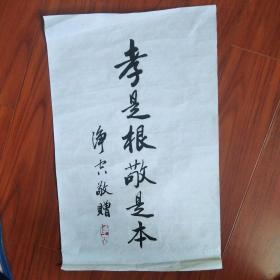 孝是根敬是本
净空敬赠